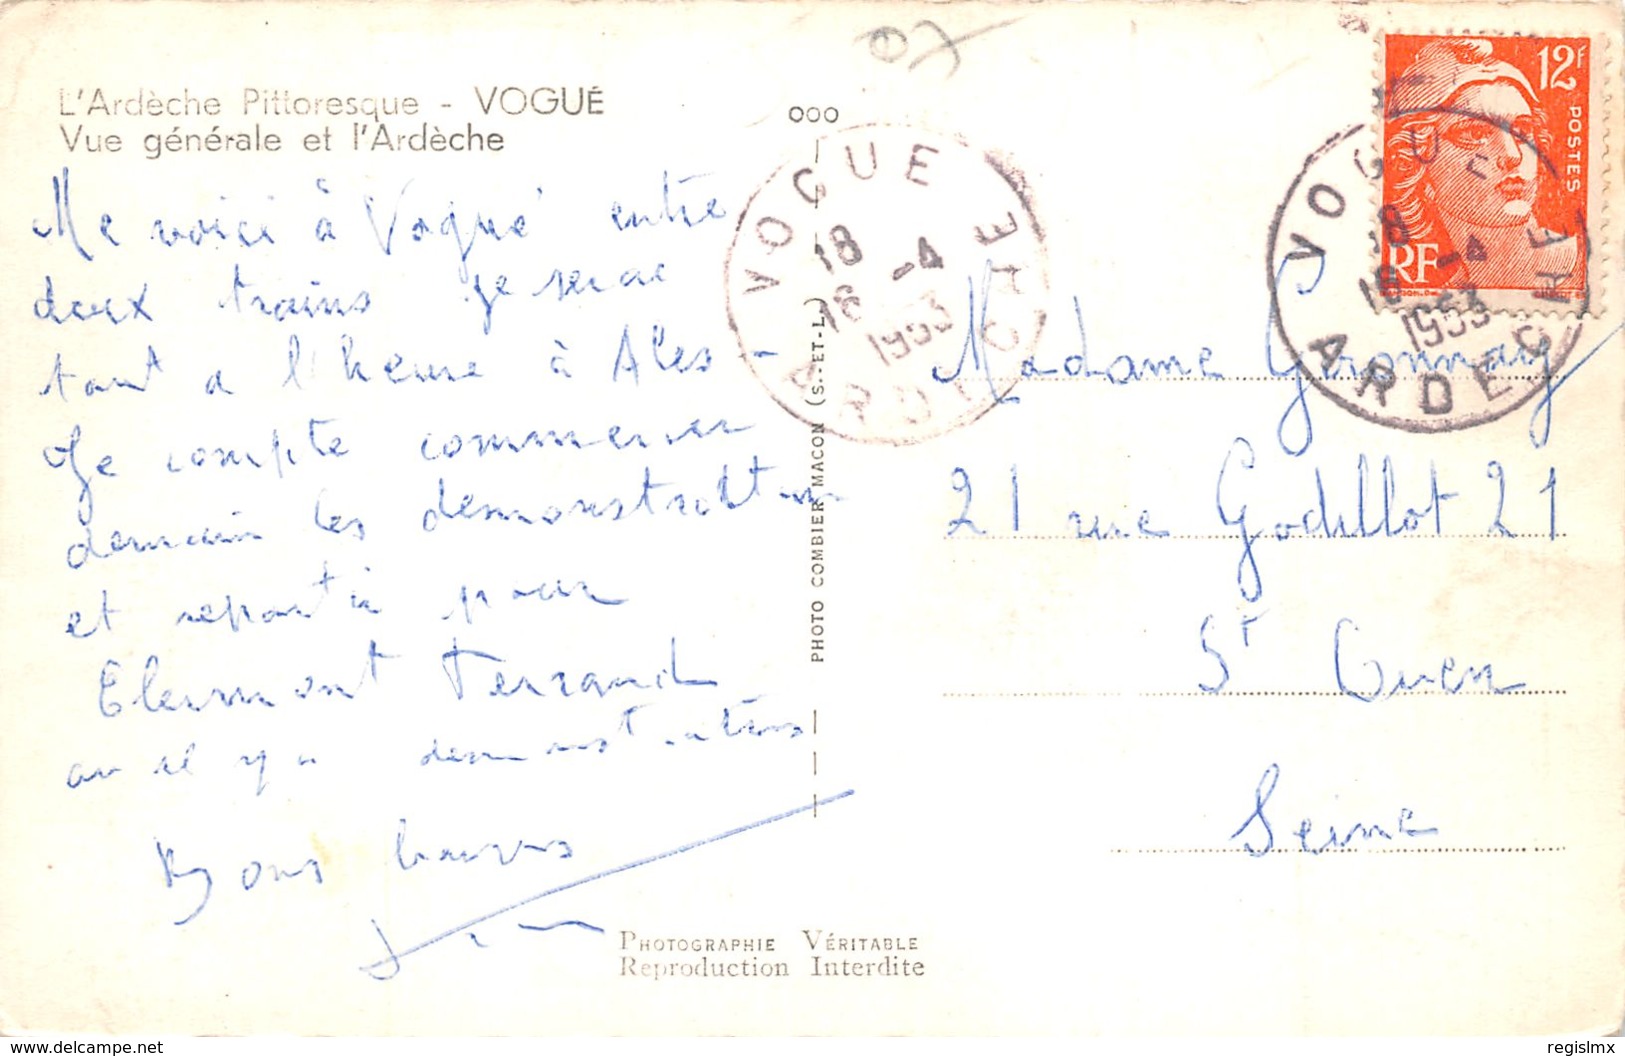 L'Ardèche Pittoresque - VOGUÉ
Vue générale et l'Ardèche
Me voici à Vogué entre
deux trains je serai
tout a l'heure à Ales -
Je compte commencer
demain les demonstration
et repartir pour
Clermont Ferrand
ou il y a demonstrations
Bons baisers
ooo
PHOTO COMBIER MACON (S.-ET-L.)
PHOTOGRAPHIE VÉRITABLE
Reproduction Interdite
VOGUE
18
18 -4
1953
ARDECHE
12F
POSTES
RF
VOGUE
18
18 -4
1953
ARDECHE
Madame
21 rue Godillot 21
St Ouen
Seine
delcampe.net
regislmx